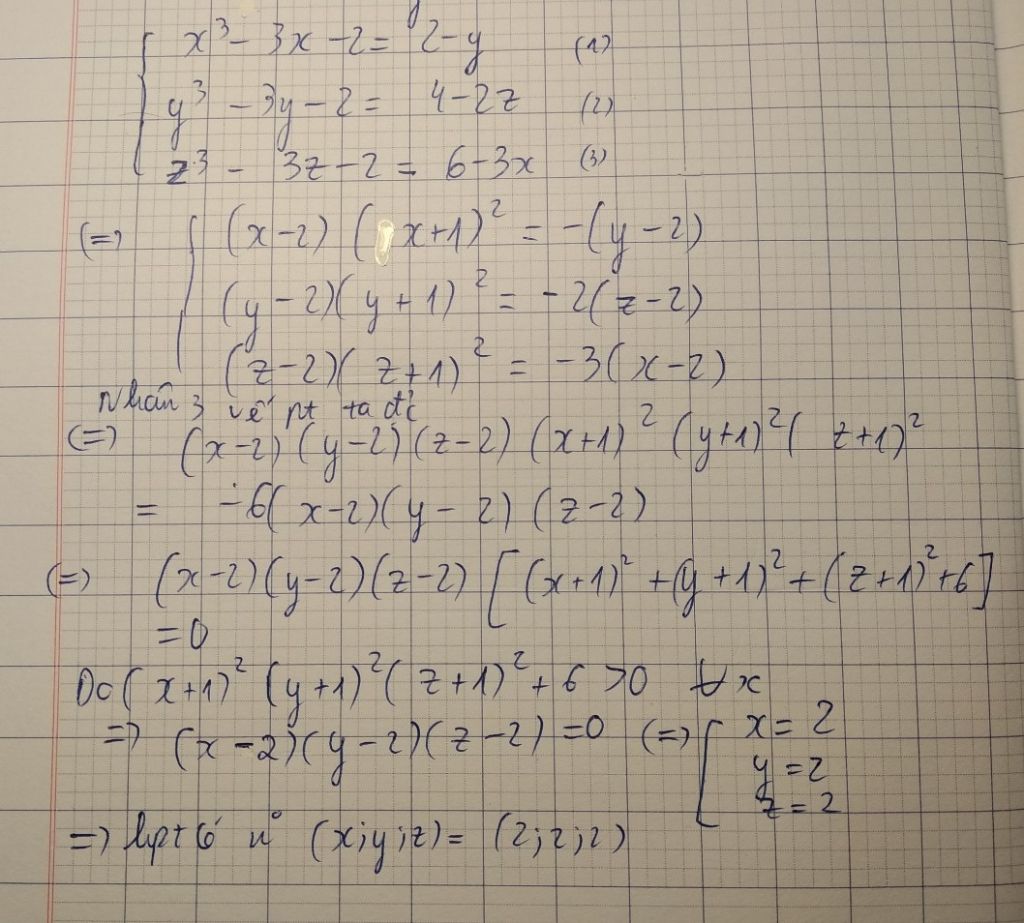 x³ - 3x - 2 = 2 - y (1)
y³ - 3y - 2 = 4 - 2z (2)
z³ - 3z - 2 = 6 - 3x (3)
(=) (x-2) (x+1)² = -(y-2)
(y-2)(y+1)² = -2(z-2)
(z-2)(z+1)² = -3(x-2)
Nhân 3 vế pt ta đc
(=) (x-2)(y-2)(z-2)(x+1)²(y+1)²(z+1)²
= -6(x-2)(y-2)(z-2)
(=) (x-2)(y-2)(z-2)[(x+1)²+(y+1)²+(z+1)²+6]
=0
Do (x+1)²(y+1)²(z+1)²+6 >0 ∀x
=> (x-2)(y-2)(z-2)=0 (=) [ x=2
y=2
z=2
=> hpt có n° (x;y;z)= (2;2;2)